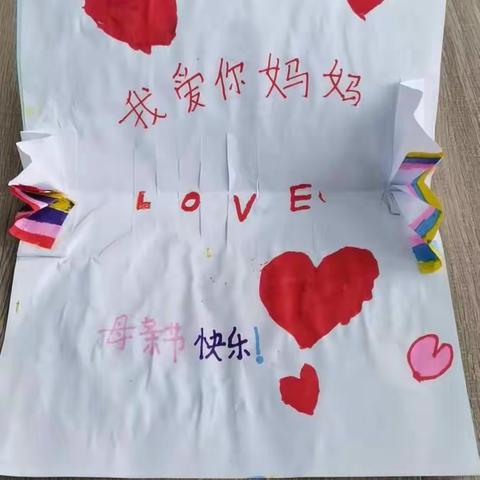 我爱你妈妈
LOVE
母亲节快乐!